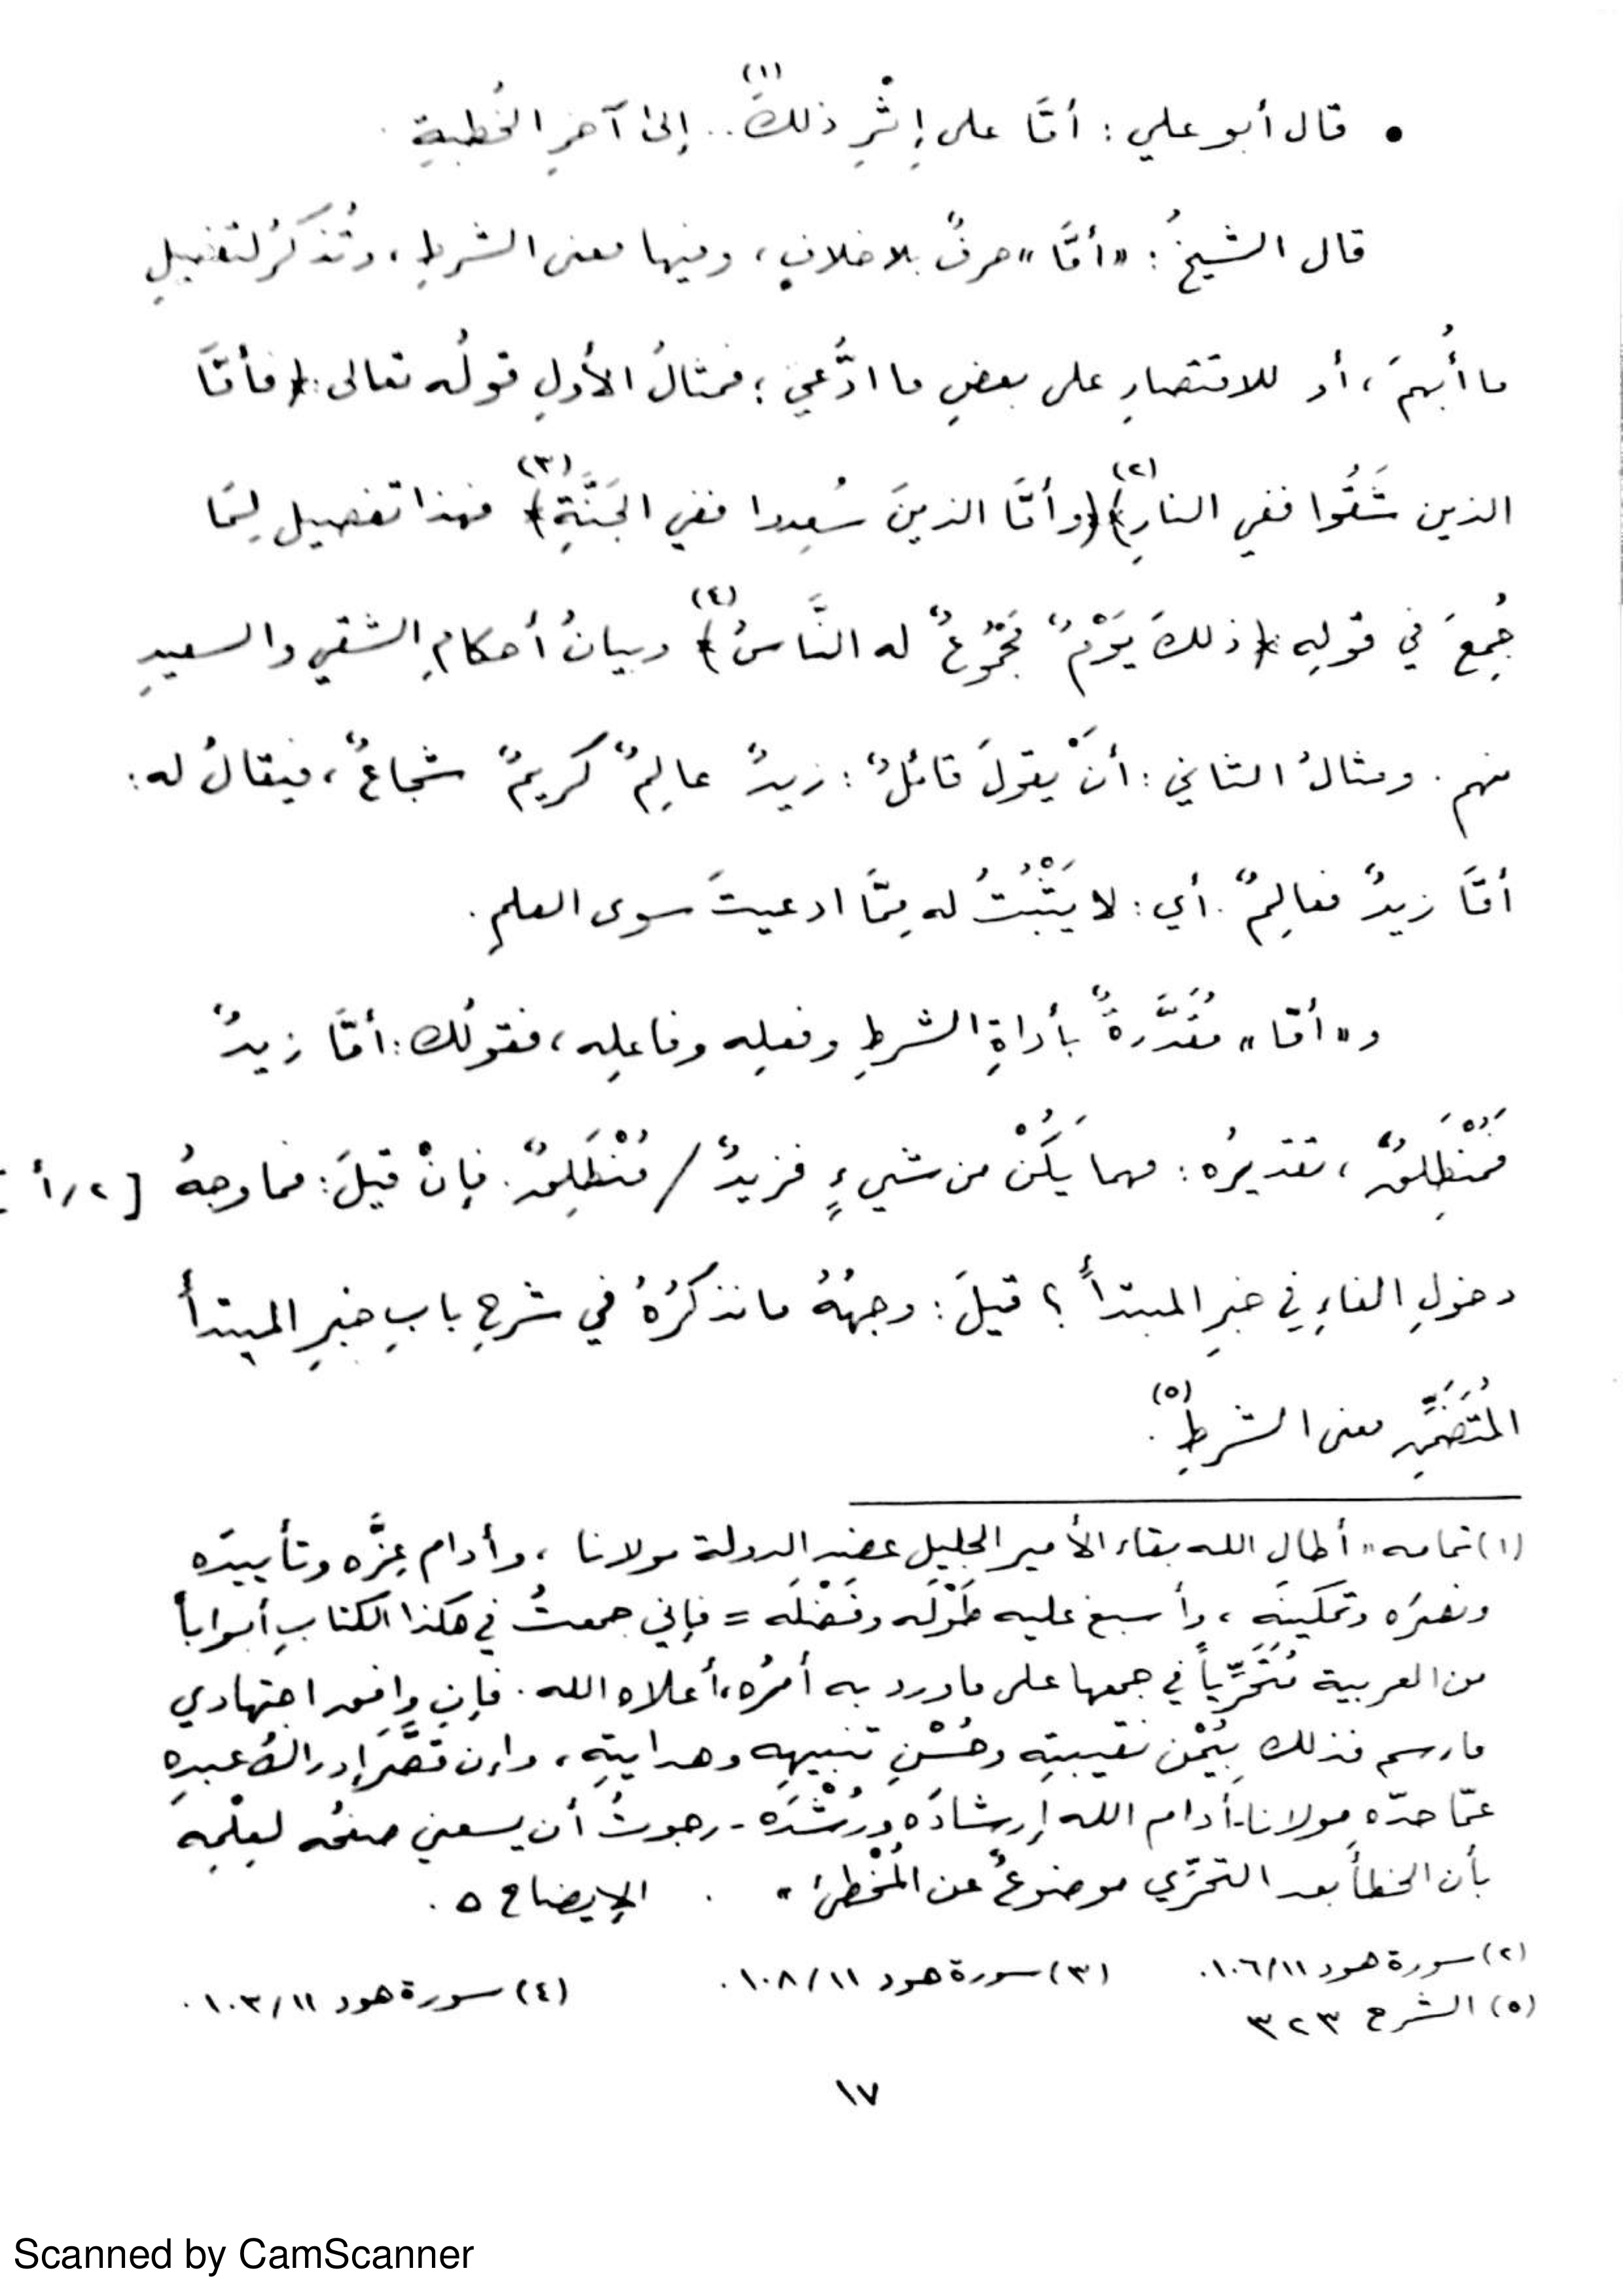 • قال أبو علي : أمَّا على إِثْرِ ذلكَ(١) .. إلى آخرِ الخُطبةِ .
قال الشيخُ : «أمَّا» حرفٌ بلا خلافٍ ، وفيها معنى الشرطِ ، وتُذكَرُ لتفصيلِ
ما أُبهمَ ، أو للاقتصارِ على بعضِ ما ادُّعيَ ؛ فمثالُ الأولِ قولُه تعالى : ﴿فأمَّا
الذين شَقُوا ففي النارِ﴾(٢) ﴿وأمَّا الذينَ سُعِدوا ففي الجَنَّةِ﴾(٣) فهذا تفصيل لِمَا
جُمِعَ في قولِهِ ﴿ذلكَ يَوْمٌ مَجْمُوعٌ له النَّاسُ﴾(٤) وبيانُ أحكامِ الشقيِ والسعيدِ
منهم . ومثالُ الثاني : أنْ يقولَ قائلٌ : زيدٌ عالِمٌ كريمٌ شجاعٌ ، فيقالُ له :
أمَّا زيدٌ فعالِمٌ . أي : لا يَثْبُتُ له مِمَّا ادعيتَ سوى العلمِ .
و«أمّا» مُقَدَّرةٌ بأداةِ الشرطِ وفعلِه وفاعلِه ، فقولُك : أمَّا زيدٌ
فَمُنْطَلِقٌ ، تقديرُه : مهما يَكُنْ من شيءٍ فزيدٌ / مُنْطَلِقٌ . فإنْ قيلَ : فما وجهُ [٢/أ]
دخولِ الفاءِ في خبرِ المبتدأ ؟ قيلَ : وجهُهُ ما نذكرُهُ في شرحِ بابِ خبرِ المبتدأ
المُتَضَمِّنِ معنى الشرطِ(٥) .
(١) تمامه «أطال الله بقاء الأميرِ الجليلِ عضدِ الدولة مولانا ، وأدام عِزَّه وتأييدَه
ونصرَه وتمكينَه ، وأسبغ عليه طَوْلَه وفَضْلَه = فإني جمعتُ في هكذا الكتابِ أبواباً
من العربية مُتَحَرِّياً في جمعها على ما ورد به أمرُه ، أعلاه الله . فإن وافق اجتهادي
ما رسم فذلك بِيُمْنِ نقيبتِهِ وحُسْنِ تنبيهِه وهدايتِهِ ، وإن قَصَّرَ إدراكُ عبدِهِ
عمّا حدّه مولانا - أدام الله إرشادَه ورُشْدَه - رجوتُ أن يسعني صفحُه لعِلْمِهِ
بأن الخطأ بعد التحرّي موضوعٌ عن المُخْطِئ» . الإيضاح ٥ .
(٢) سورة هود ١١/١٠٦ .
(٣) سورة هود ١١/١٠٨ .
(٤) سورة هود ١١/١٠٣ .
(٥) الشرح ٣٢٣
١٧
Scanned by CamScanner